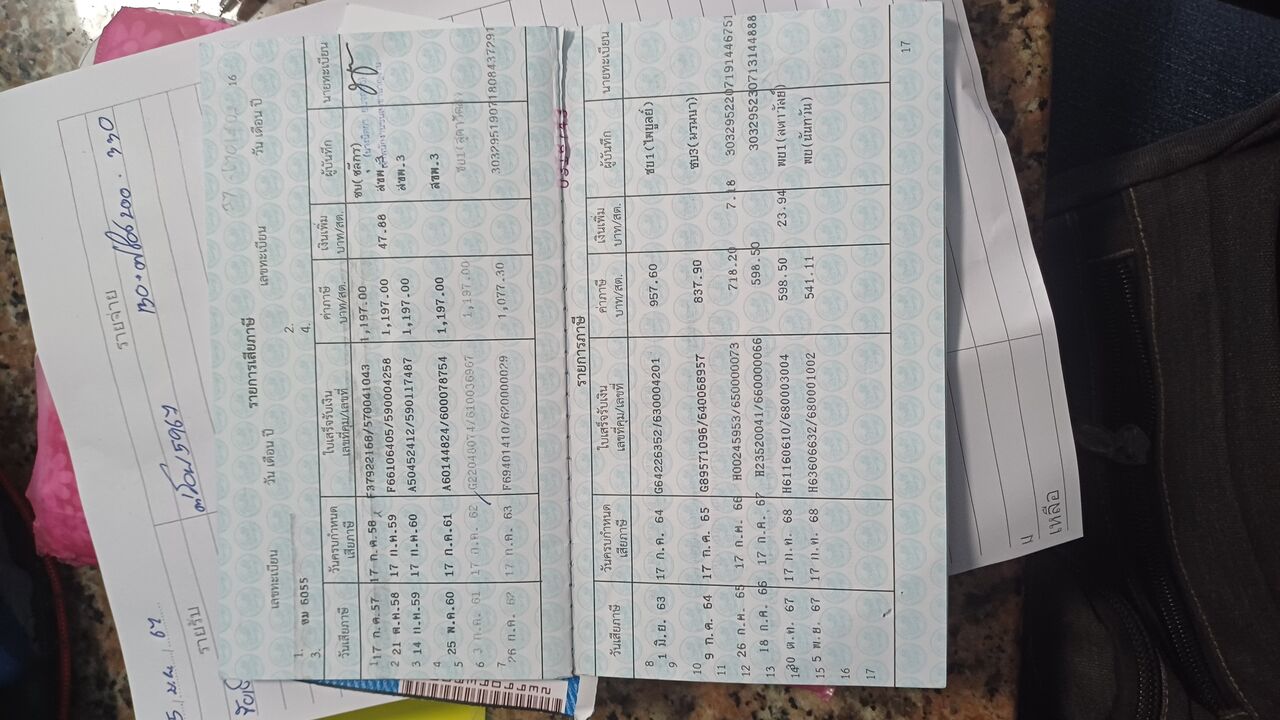 16
รายการเสียภาษี
เลขทะเบียน วัน เดือน ปี เลขทะเบียน วัน เดือน ปี
1. 2.
3. ขม 6055 4.
วันเสียภาษี วันครบกำหนดเสียภาษี ใบเสร็จรับเงิน เลขที่คุม/เลขที่ ค่าภาษี บาท/สต. เงินเพิ่ม บาท/สต. ผู้บันทึก นายทะเบียน
1 17 ก.ค.57 17 ก.ค.58 F37922168/570041043 1,197.00 ชบ(ชลีกร)
2 21 ต.ค.58 17 ก.ค.59 F66106405/590004258 1,197.00 47.88 สขพ.
3 14 ก.ค.59 17 ก.ค.60 A50452412/590117487 1,197.00 สขพ.3
4 25 พ.ค.60 17 ก.ค.61 A60144824/600078754 1,197.00 สขพ.3
5
6 3 ก.ค. 61 17 ก.ค. 62 G22048074/610036967 1,197.00
7 26 ก.ค. 62 17 ก.ค. 63 F69401410/620000029 1,077.30 30329519071808437291
รายการภาษี
วันเสียภาษี วันครบกำหนดเสียภาษี ใบเสร็จรับเงิน เลขที่คุม/เลขที่ ค่าภาษี บาท/สต. เงินเพิ่ม บาท/สต. ผู้บันทึก นายทะเบียน
8 1 มิ.ย. 63 17 ก.ค. 64 G64226352/630004201 957.60 ชบ1(ไพบูลย์)
9
10 9 ก.ค. 64 17 ก.ค. 65 G89571096/640068957 837.90 ชบ3(มรมนา)
11
12 26 ก.ค. 65 17 ก.ค. 66 H00245953/650000073 718.20 7.18 30329522071914467​51
13 18 ก.ค. 66 17 ก.ค. 67 H23520041/660000066 598.50 30329523071314488​8
14 30 ต.ค. 67 17 ก.ค. 68 H61160610/680003004 598.50 23.94 พย1(มหาวัลย์)
15 5 พ.ย. 67 17 ก.ค. 68 H63606632/680001002 541.11 พย(นันทวัน)
16
17
17
รายจ่าย
รายรับ
เหลือ